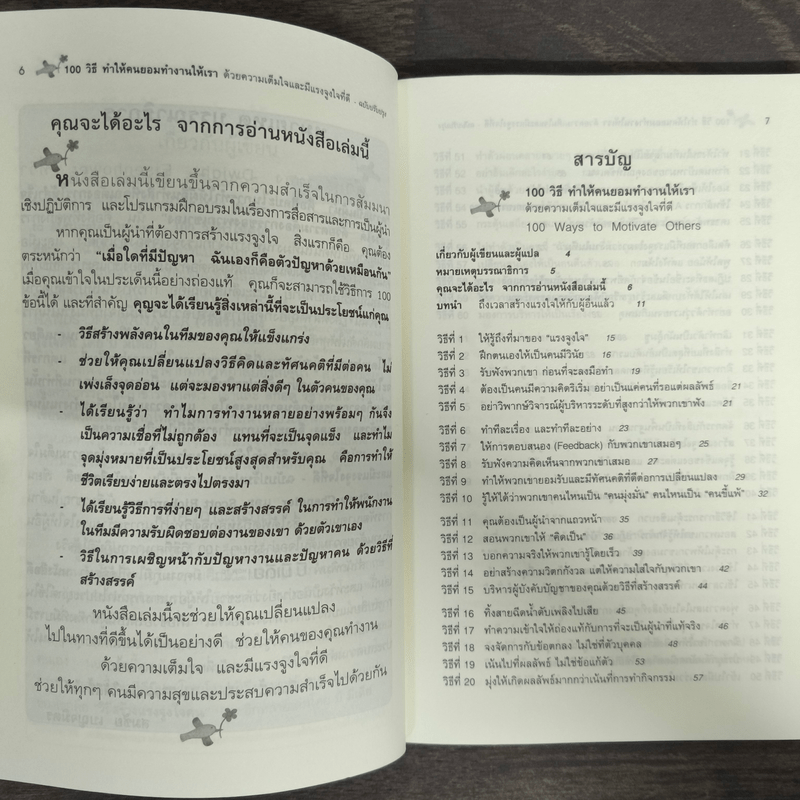 6
100 วิธี ทำให้คนยอมทำงานให้เรา ด้วยความเต็มใจและมีแรงจูงใจที่ดี - ฉบับปรับปรุง
คุณจะได้อะไร จากการอ่านหนังสือเล่มนี้
หนังสือเล่มนี้เขียนขึ้นจากความสำเร็จในการสัมมนา
เชิงปฏิบัติการ และโปรแกรมฝึกอบรมในเรื่องการสื่อสารและการเป็นผู้นำ
หากคุณเป็นผู้นำที่ต้องการสร้างแรงจูงใจ สิ่งแรกก็คือ คุณต้อง
ตระหนักว่า "เมื่อใดที่มีปัญหา ฉันเองก็คือตัวปัญหาด้วยเหมือนกัน"
เมื่อคุณเข้าใจในประเด็นนี้อย่างถ่องแท้ คุณก็จะสามารถใช้วิธีการ 100
ข้อนี้ได้ และที่สำคัญ คุณจะได้เรียนรู้สิ่งเหล่านี้ที่จะเป็นประโยชน์แก่คุณ
- วิธีสร้างพลังคนในทีมของคุณให้แข็งแกร่ง
- ช่วยให้คุณเปลี่ยนแปลงวิธีคิดและทัศนคติที่มีต่อคน ไม่
เพ่งเล็งจุดอ่อน แต่จะมองหาแต่สิ่งดีๆ ในตัวคนของคุณ
- ได้เรียนรู้ว่า ทำไมการทำงานหลายอย่างพร้อมๆ กันจึง
เป็นความเชื่อที่ไม่ถูกต้อง แทนที่จะเป็นจุดแข็ง และทำไม
จุดมุ่งหมายที่เป็นประโยชน์สูงสุดสำหรับคุณ คือการทำให้
ชีวิตเรียบง่ายและตรงไปตรงมา
- ได้เรียนรู้วิธีการที่ง่ายๆ และสร้างสรรค์ ในการทำให้พนักงาน
ในทีมมีความรับผิดชอบต่องานของเขา ด้วยตัวเขาเอง
- วิธีในการเผชิญหน้ากับปัญหางานและปัญหาคน ด้วยวิธีที่
สร้างสรรค์
หนังสือเล่มนี้จะช่วยให้คุณเปลี่ยนแปลง
ไปในทางที่ดีขึ้นได้เป็นอย่างดี ช่วยให้คนของคุณทำงาน
ด้วยความเต็มใจ และมีแรงจูงใจที่ดี
ช่วยให้ทุกๆ คนมีความสุขและประสบความสำเร็จไปด้วยกัน
7
สารบัญ
100 วิธี ทำให้คนยอมทำงานให้เรา
ด้วยความเต็มใจและมีแรงจูงใจที่ดี
100 Ways to Motivate Others
เกี่ยวกับผู้เขียนและผู้แปล 4
หมายเหตุบรรณาธิการ 5
คุณจะได้อะไร จากการอ่านหนังสือเล่มนี้ 6
บทนำ ถึงเวลาสร้างแรงใจให้กับผู้อื่นแล้ว 11
วิธีที่ 1 ให้รู้ถึงที่มาของ "แรงจูงใจ" 15
วิธีที่ 2 ฝึกตนเองให้เป็นคนมีวินัย 16
วิธีที่ 3 รับฟังพวกเขา ก่อนที่จะลงมือทำ 19
วิธีที่ 4 ต้องเป็นคนมีความคิดริเริ่ม อย่าเป็นแค่คนที่รอแต่ผลลัพธ์ 21
วิธีที่ 5 อย่าวิพากษ์วิจารณ์ผู้บริหารระดับที่สูงกว่าให้พวกเขาฟัง 21
วิธีที่ 6 ทำทีละเรื่อง และทำทีละอย่าง 23
วิธีที่ 7 ให้การตอบสนอง (Feedback) กับพวกเขาเสมอๆ 25
วิธีที่ 8 รับฟังความคิดเห็นจากพวกเขาเสมอ 27
วิธีที่ 9 ทำให้พวกเขายอมรับและมีทัศนคติที่ดีต่อการเปลี่ยนแปลง 29
วิธีที่ 10 รู้ให้ได้ว่าพวกเขาคนไหนเป็น "คนมุ่งมั่น" คนไหนเป็น "คนขี้แพ้" 32
วิธีที่ 11 คุณต้องเป็นผู้นำจากแถวหน้า 35
วิธีที่ 12 สอนพวกเขาให้ "คิดเป็น" 36
วิธีที่ 13 บอกความจริงให้พวกเขารู้โดยเร็ว 39
วิธีที่ 14 อย่าสร้างความวิตกกังวล แต่ให้ความใส่ใจกับพวกเขา 42
วิธีที่ 15 บริหารผู้บังคับบัญชาของคุณด้วยวิธีที่สร้างสรรค์ 44
วิธีที่ 16 ทิ้งสายฉีดน้ำดับเพลิงไปเสีย 45
วิธีที่ 17 ทำความเข้าใจให้ถ่องแท้กับการที่จะเป็นผู้นำที่แท้จริง 46
วิธีที่ 18 จงจัดการกับข้อตกลง ไม่ใช่ที่ตัวบุคคล 48
วิธีที่ 19 เน้นไปที่ผลลัพธ์ ไม่ใช่ข้อแก้ตัว 53
วิธีที่ 20 มุ่งให้เกิดผลลัพธ์มากกว่าเน้นที่การทำกิจกรรม 57